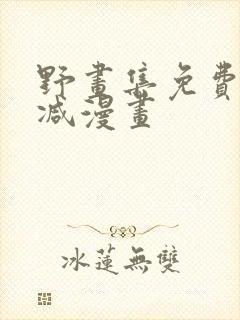 野畫集免費
减漫畫
冰蓮無雙